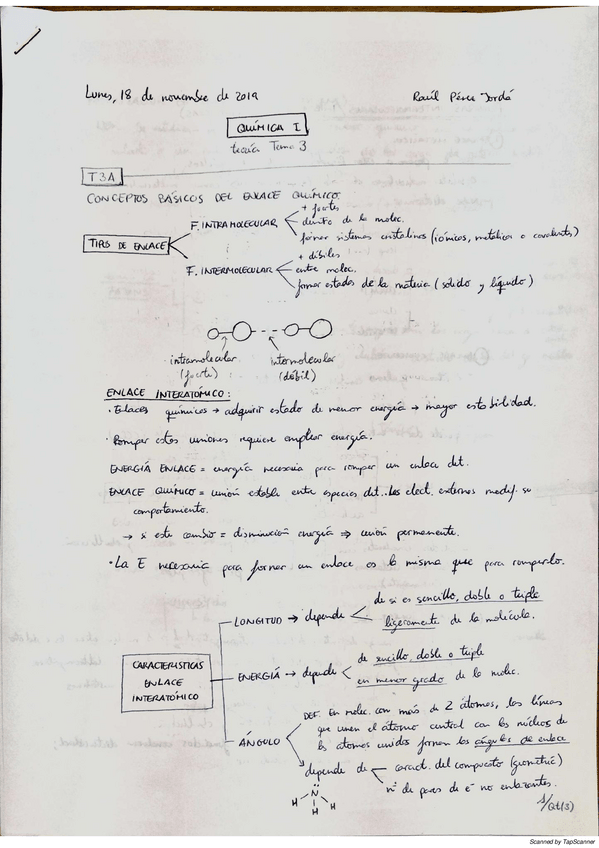 Lunes, 18 de noviembre de 2019 Raúl Pérez Jordá
QUÍMICA I
teoría Tema 3
T3A
CONCEPTOS BÁSICOS DEL ENLACE QUÍMICO
+ fuertes
F. INTRAMOLECULAR dentro de la molec.
forman sistemas cristalinos (iónicos, metálicos o covalentes)
TIPOS DE ENLACE
+ débiles
F. INTERMOLECULAR entre molec.
forman estados de la materia (sólido y líquido)
intramolecular intermolecular
(fuerte) (débil)
ENLACE INTERATÓMICO:
· Enlaces químicos → adquirir estado de menor energía → mayor estabilidad.
· Romper estas uniones requiere emplear energía.
ENERGÍA ENLACE = energía necesaria para romper un enlace det.
ENLACE QUÍMICO = unión estable entre especies det. Los elect. externos modif. su
comportamiento.
→ si este cambio = disminución energía ⇒ unión permanente.
· La E necesaria para formar un enlace es la misma que para romperlo.
de si es sencillo, doble o triple
LONGITUD → depende
ligeramente de la molécula.
CARACTERÍSTICAS
ENLACE
INTERATÓMICO
de sencillo, doble o triple
ENERGÍA → depende
en menor grado de la molec.
DEF. En molec. con más de 2 átomos, las líneas
que unen el átomo central con los núcleos de
ÁNGULO
ls átomos unidos forman los ángulos de enlace
depende de caract. del compuesto (geometría)
nº de pares de e⁻ no enlazantes.
N
H H
H
1/Qt(3)
Scanned by TapScanner